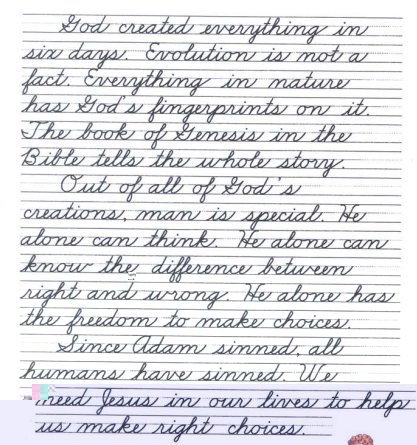 God created everything in
six days. Evolution is not a
fact. Everything in nature
has God's fingerprints on it.
The book of Genesis in the
Bible tells the whole story.
Out of all of God's
creations, man is special. He
alone can think. He alone can
know the difference between
right and wrong. He alone has
the freedom to make choices.
Since Adam sinned, all
humans have sinned. We
need Jesus in our lives to help
us make right choices.